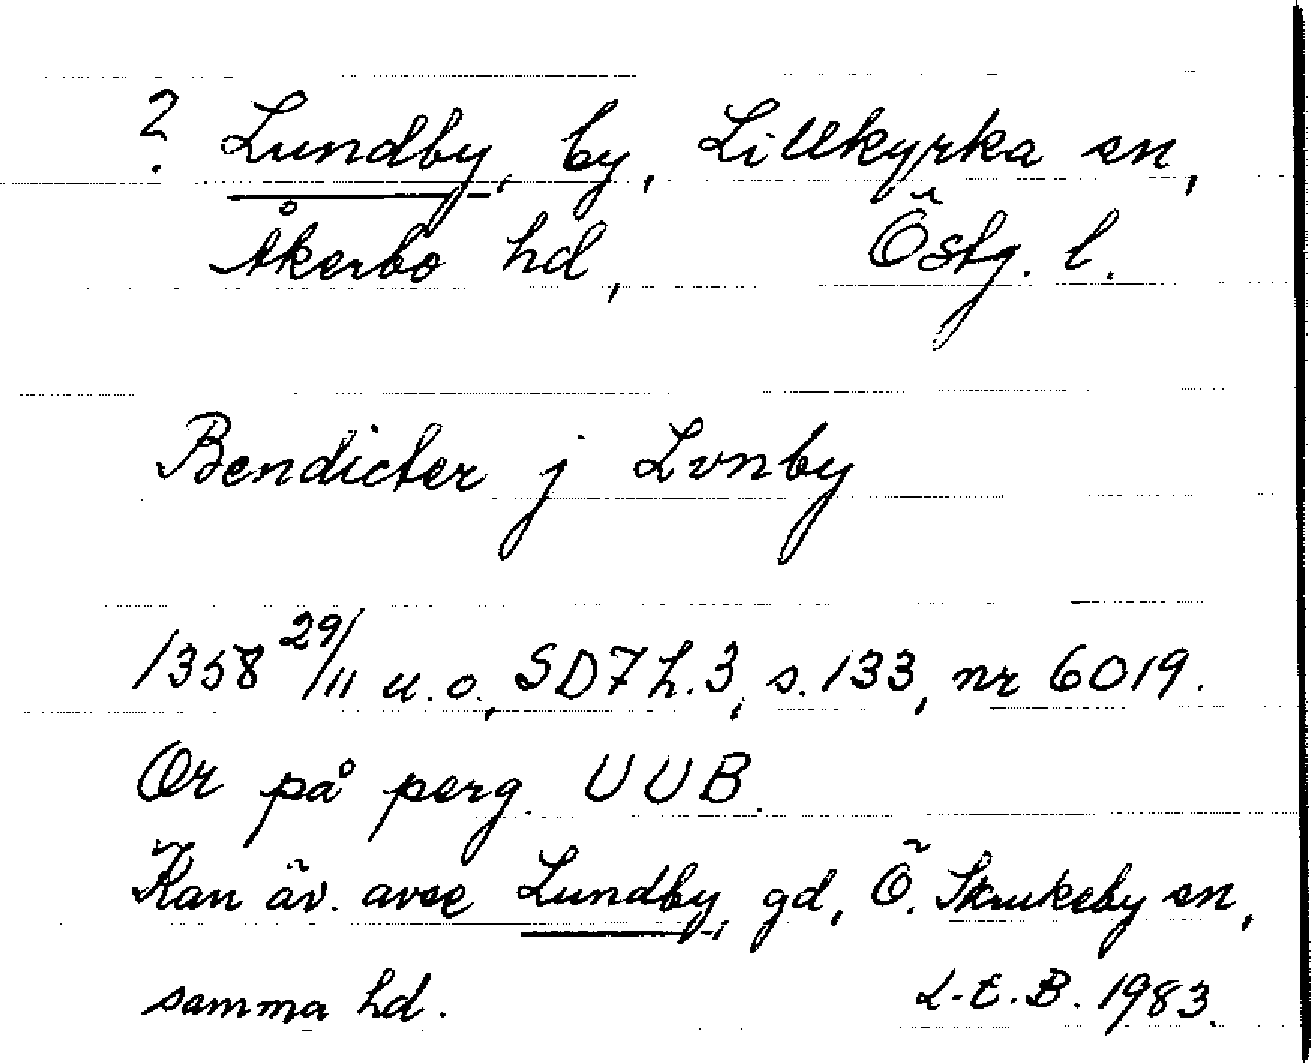 ? Lundby, by, Lillkyrka sn,
Åkerbo hd, Östg. l.
Bendicter j Lvnby
1358 29/11 u.o., SD7 h.3, s.133, nr 6019.
Or på perg. UUB.
Kan äv. avse Lundby, gd, Ö. Skrukeby sn,
samma hd. L.E.B. 1983.